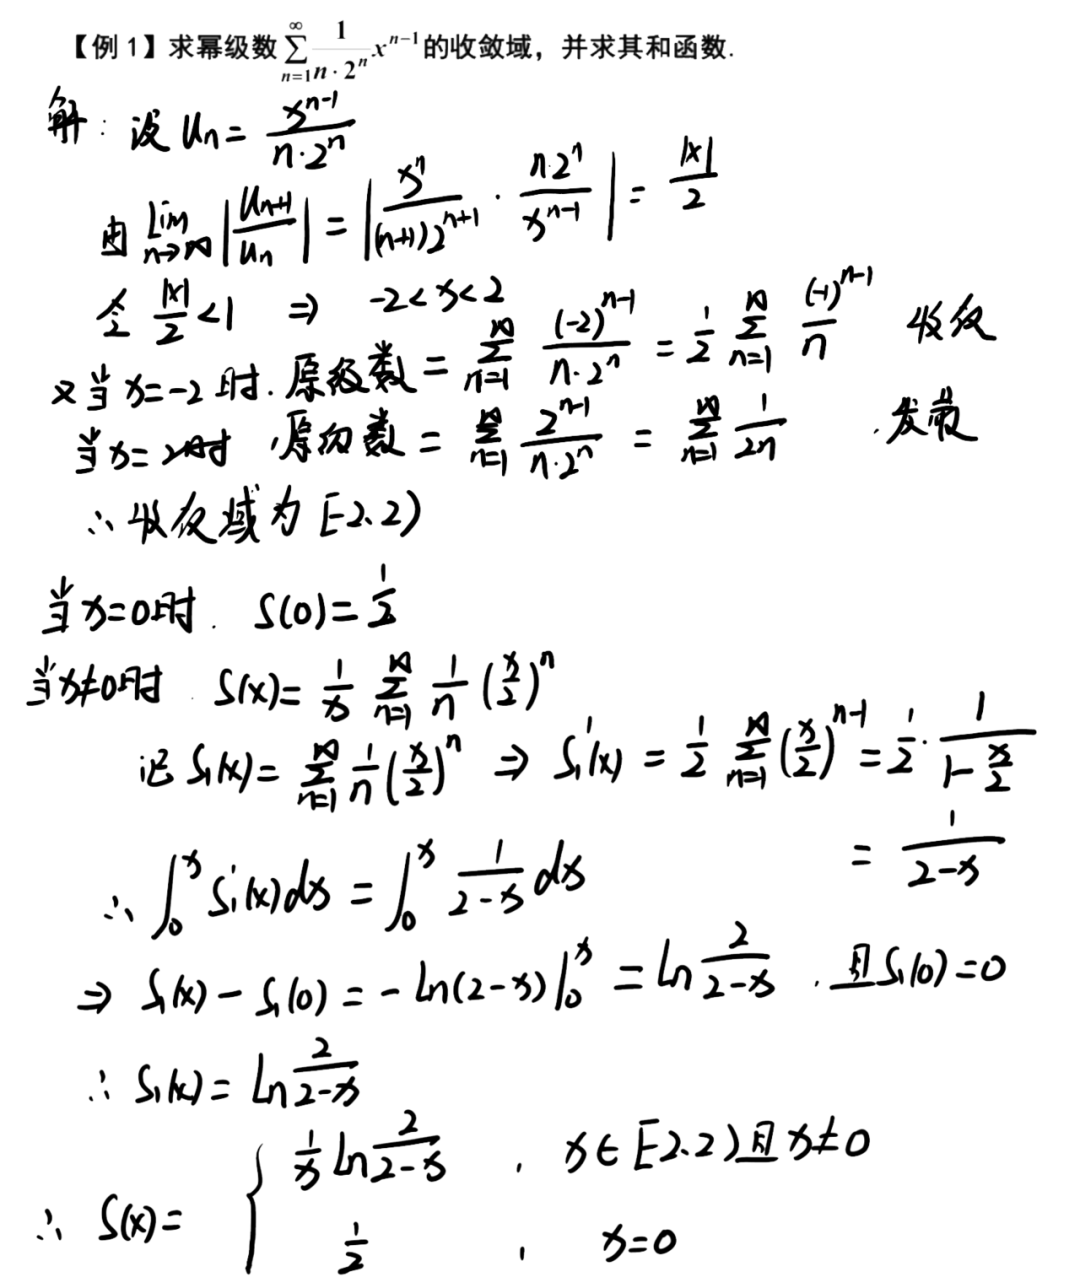 【例 1】求幂级数 ∑_{n=1}^{∞} 1/(n·2^n) x^{n-1} 的收敛域，并求其和函数.
解：设 Un = x^{n-1}/(n·2^n)
由 lim_{n→∞} |U_{n+1}/U_n| = |x^n/((n+1)2^{n+1}) · n·2^n/x^{n-1}| = |x|/2
令 |x|/2 < 1 ⇒ -2<x<2
又当 x=-2 时. 原级数 = ∑_{n=1}^{∞} (-2)^{n-1}/(n·2^n) = 1/2 ∑_{n=1}^{∞} (-1)^{n-1}/n 收敛
当 x=2时 , 原级数 = ∑_{n=1}^{∞} 2^{n-1}/(n·2^n) = ∑_{n=1}^{∞} 1/(2n) . 发散
∴ 收敛域为 [-2、2)
当 x=0时. S(0)= 1/2
当x≠0时 . S(x)= 1/x ∑_{n=1}^{∞} 1/n (x/2)^n
记 S₁(x)= ∑_{n=1}^{∞} 1/n (x/2)^n ⇒ S₁'(x) = 1/2 ∑_{n=1}^{∞} (x/2)^{n-1} = 1/2 · 1/(1-x/2)
= 1/(2-x)
∴ ∫_0^x S₁'(x)dx = ∫_0^x 1/(2-x) dx
⇒ S₁(x) - S₁(0) = -ln(2-x)|_0^x = ln 2/(2-x) . 且S₁(0)=0
∴ S₁(x)= ln 2/(2-x)
∴ S(x)= { 1/x ln 2/(2-x) , x∈[-2、2)且x≠0
1/2 , x=0